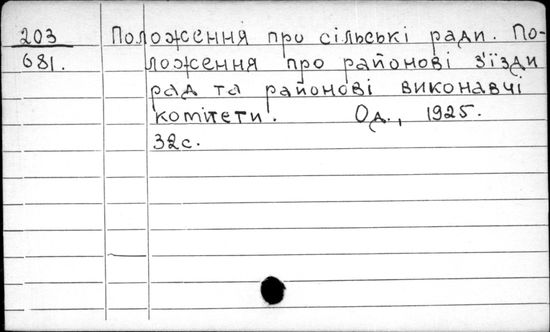 203 Положення про сільські ради. По-
681. ложення про районові з'їзди
рад та районові виконавчі
комітети. Од., 1925.
32с.